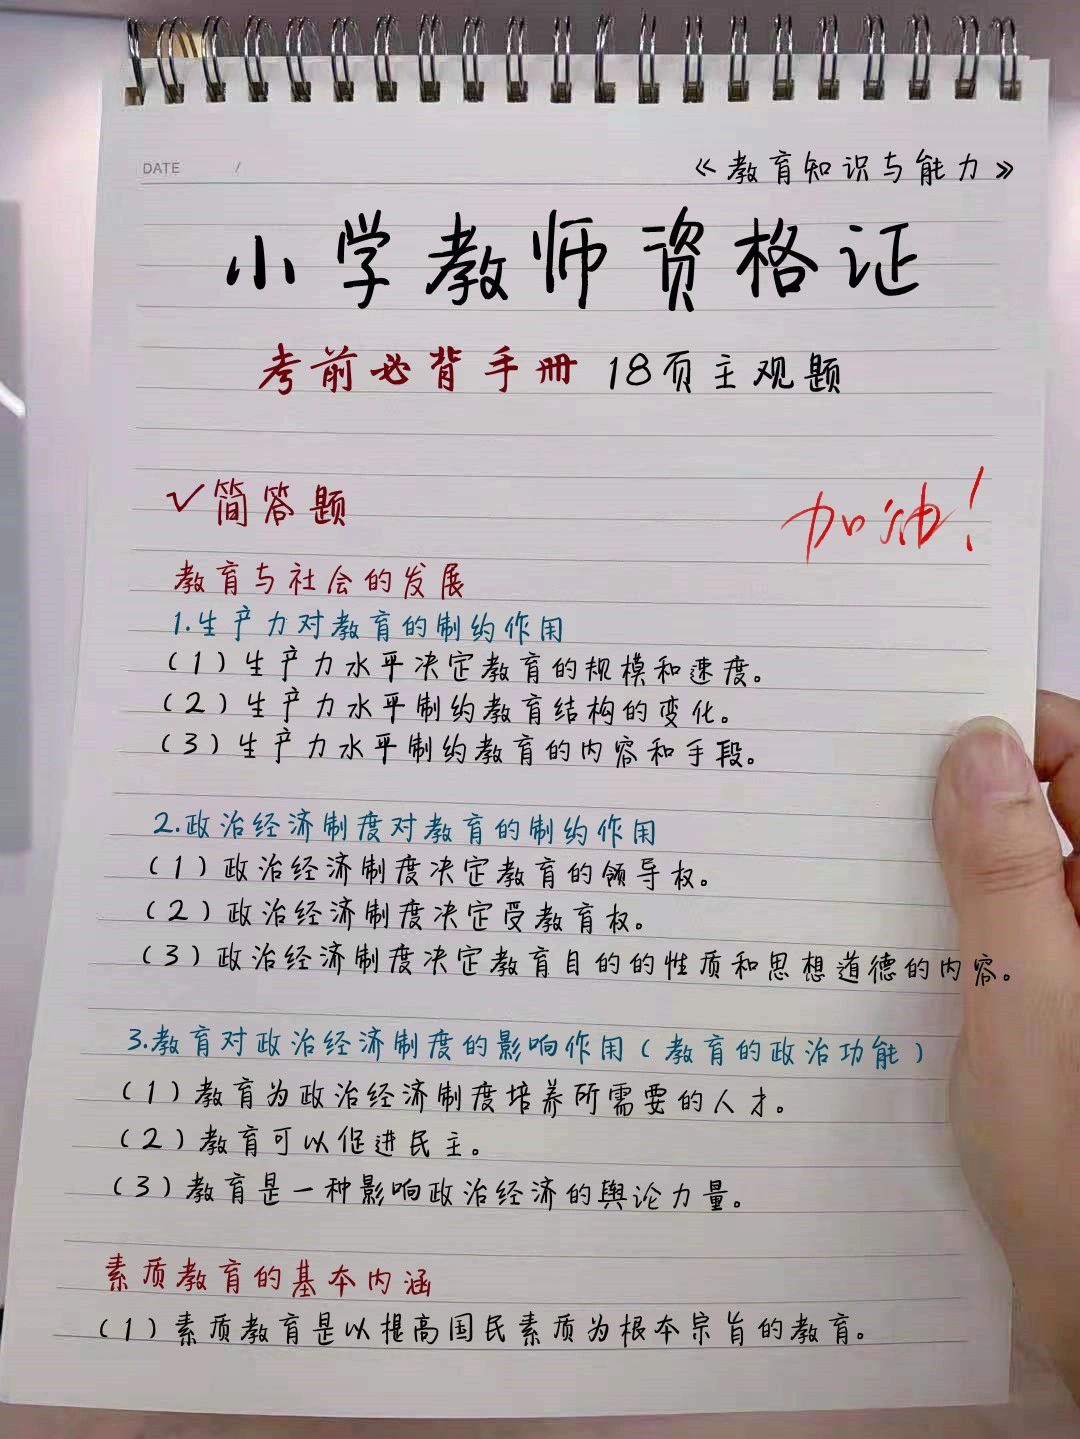 DATE /
《教育知识与能力》
小学教师资格证
考前必背手册 18页主观题
√简答题
加油！
教育与社会的发展
1.生产力对教育的制约作用
（1）生产力水平决定教育的规模和速度。
（2）生产力水平制约教育结构的变化。
（3）生产力水平制约教育的内容和手段。
2.政治经济制度对教育的制约作用
（1）政治经济制度决定教育的领导权。
（2）政治经济制度决定受教育权。
（3）政治经济制度决定教育目的的性质和思想道德的内容。
3.教育对政治经济制度的影响作用（教育的政治功能）
（1）教育为政治经济制度培养所需要的人才。
（2）教育可以促进民主。
（3）教育是一种影响政治经济的舆论力量。
素质教育的基本内涵
（1）素质教育是以提高国民素质为根本宗旨的教育。